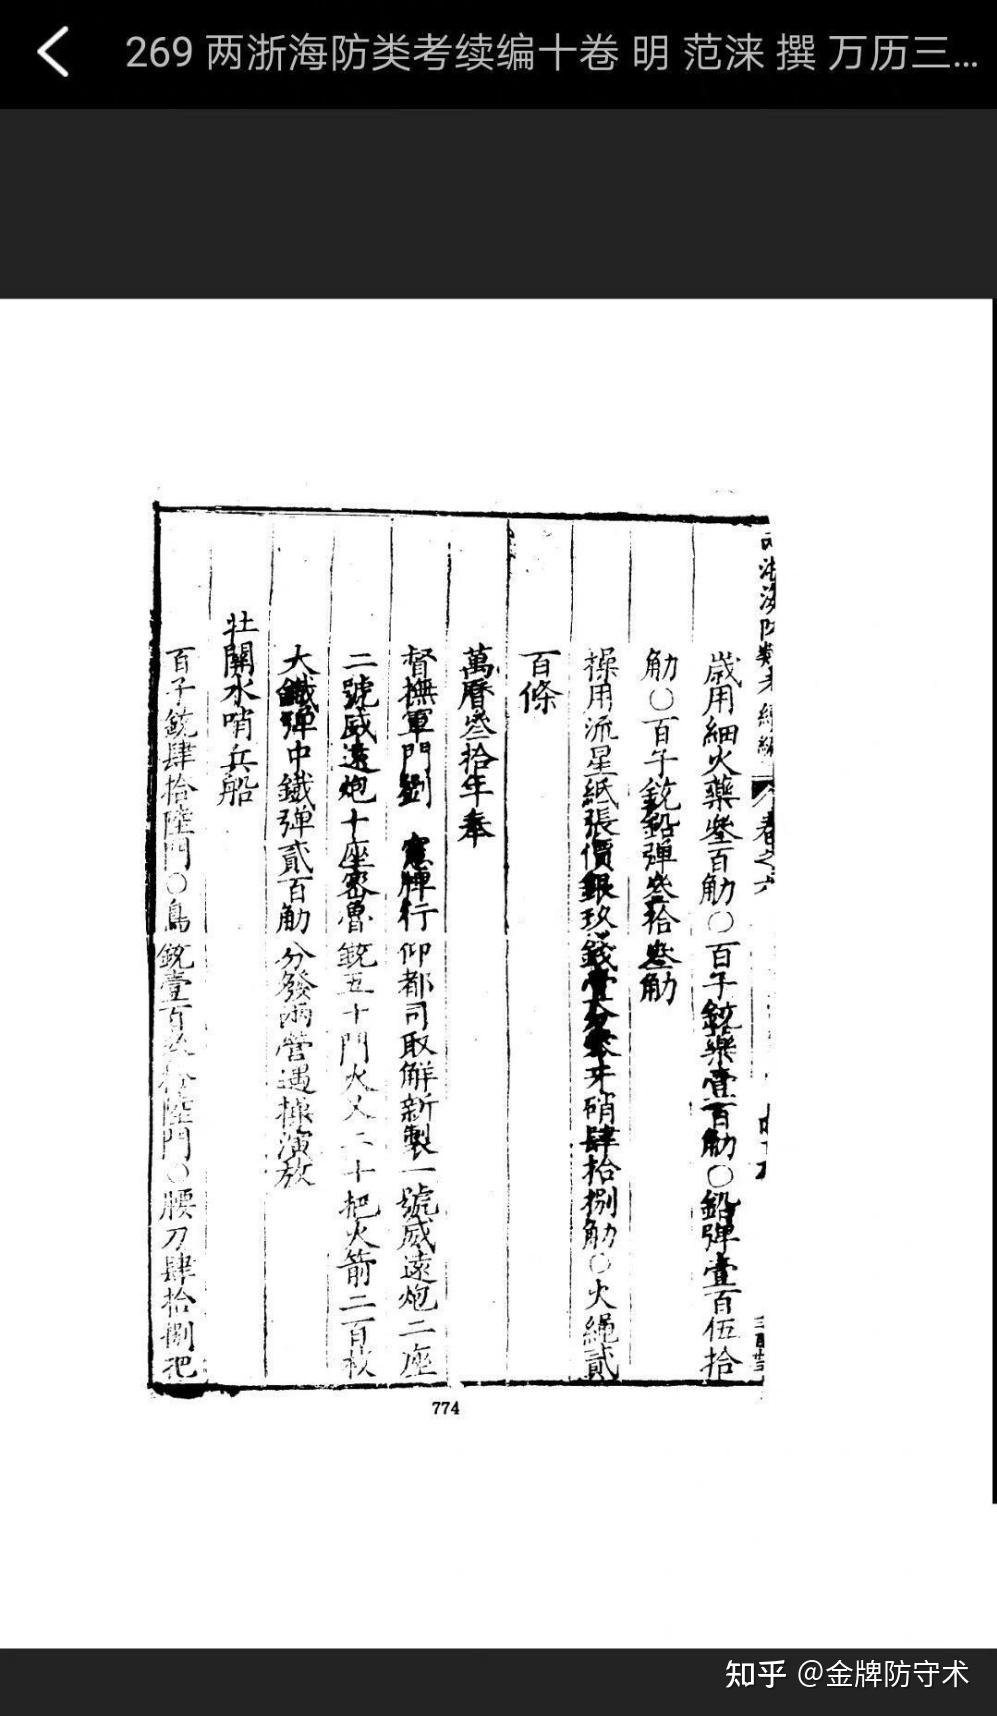 269 两浙海防类考续编十卷 明 范涞 撰 万历三…
歲用細火藥叁百觔○百子銃藥壹百觔○鉛彈壹百伍拾
觔○百子銃鉛彈叁拾叁觔
操用流星紙張價銀玖錢壹 牙硝肆拾捌觔○火繩貳
百條
萬曆叁拾年奉
督撫軍門劉 憲牌行仰都司取解新製一號威遠炮二座
二號威遠炮十座密魯銃五十門火 二十把火箭二百枝
大鐵彈中鐵彈貳百觔分發兩營遇操演放
壯關水哨兵船
百子銃肆拾陸門○鳥銃壹百 拾陸門○腰刀肆拾捌把
774
知乎 @金牌防守术